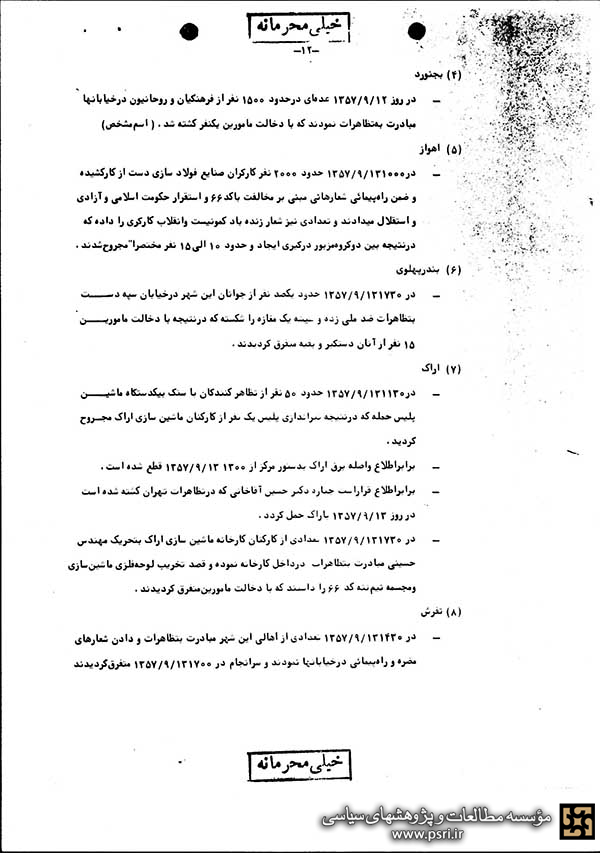 خیلی محرمانه
-۱۲-
(۴) بجنورد
- در روز ۱۳۵۷/۹/۱۲ عده‌ای درحدود ۱۵۰۰ نفر از فرهنگیان و روحانیون درخیابانها
مبادرت به‌تظاهرات نمودند که با دخالت مامورین یکنفر کشته شد . ( اسم‌مشخص)
(۵) اهواز
- در۱۳۵۷/۹/۱۲۱۰۰۰ حدود ۲۰۰۰ نفر کارکران صنایع فولاد سازی دست از کارکشیده
و ضمن راه‌پیمائی شعارهائی مبنی بر مخالفت باکد۶۶ و استقرار حکومت اسلامی و آزادی
و استقلال میدادند و تعدادی نیز شعار زنده باد کمونیست وانقلاب کارکری را داده که
درنتیجه بین دوکروه‌مزبور درکیری ایجاد و حدود ۱۰ الی۱۵ نفر مختصرا" مجروح‌شدند .
(۶) بندرپهلوی
- در ۱۳۵۷/۹/۱۲۱۷۳۰ حدود یکصد نفر از جوانان این شهر درخیابان سپه دست
بتظاهرات ضد ملی زده و شیشه یک مغازه را شکسته که درنتیجه با دخالت مامورین
۱۵ نفر از آنان دستکیر و بقیه متفرق کردیدند .
(۷) اراک
- در۱۳۵۷/۹/۱۲۱۱۳۰ حدود ۵۰ نفر از تظاهر کنندکان با سنک بیکدستکاه ماشین
پلیس حمله که درنتیجه تیراندازی پلیس یک نفر از کارکنان ماشین سازی اراک مجروح
کردید .
- برابراطلاع واصله برق اراک بدستور مرکز از ۱۳۰۰ ۱۳۵۷/۹/۱۲ قطع شده است .
- برابراطلاع قراراست جنازه دکتر حسین آقاخانی که درتظاهرات تهران کشته شده است
در روز ۱۳۵۷/۹/۱۳ باراک حمل کردد .
- در ۱۳۵۷/۹/۱۲۱۷۳۰ تعدادی از کارکنان کارخانه ماشین سازی اراک بتحریک مهندس
حسینی مبادرت بتظاهرات درداخل کارخانه نموده و قصد تخریب لوحه‌فلزی ماشین‌سازی
ومجسمه نیم‌تنه کد ۶۶ را داشتند که با دخالت مامورین‌متفرق کردیدند .
(۸) تفرش
- در ۱۳۵۷/۹/۱۲۱۴۳۰ تعدادی از اهالی این شهر مبادرت بتظاهرات و دادن شعارهای
مضره و راه‌پیمائی درخیابانها نمودند و سرانجام در ۱۳۵۷/۹/۱۲۱۷۰۰ متفرق‌کردیدند
خیلی محرمانه
مؤسسه مطالعات و پژوهشهای سیاسی
www.psri.ir